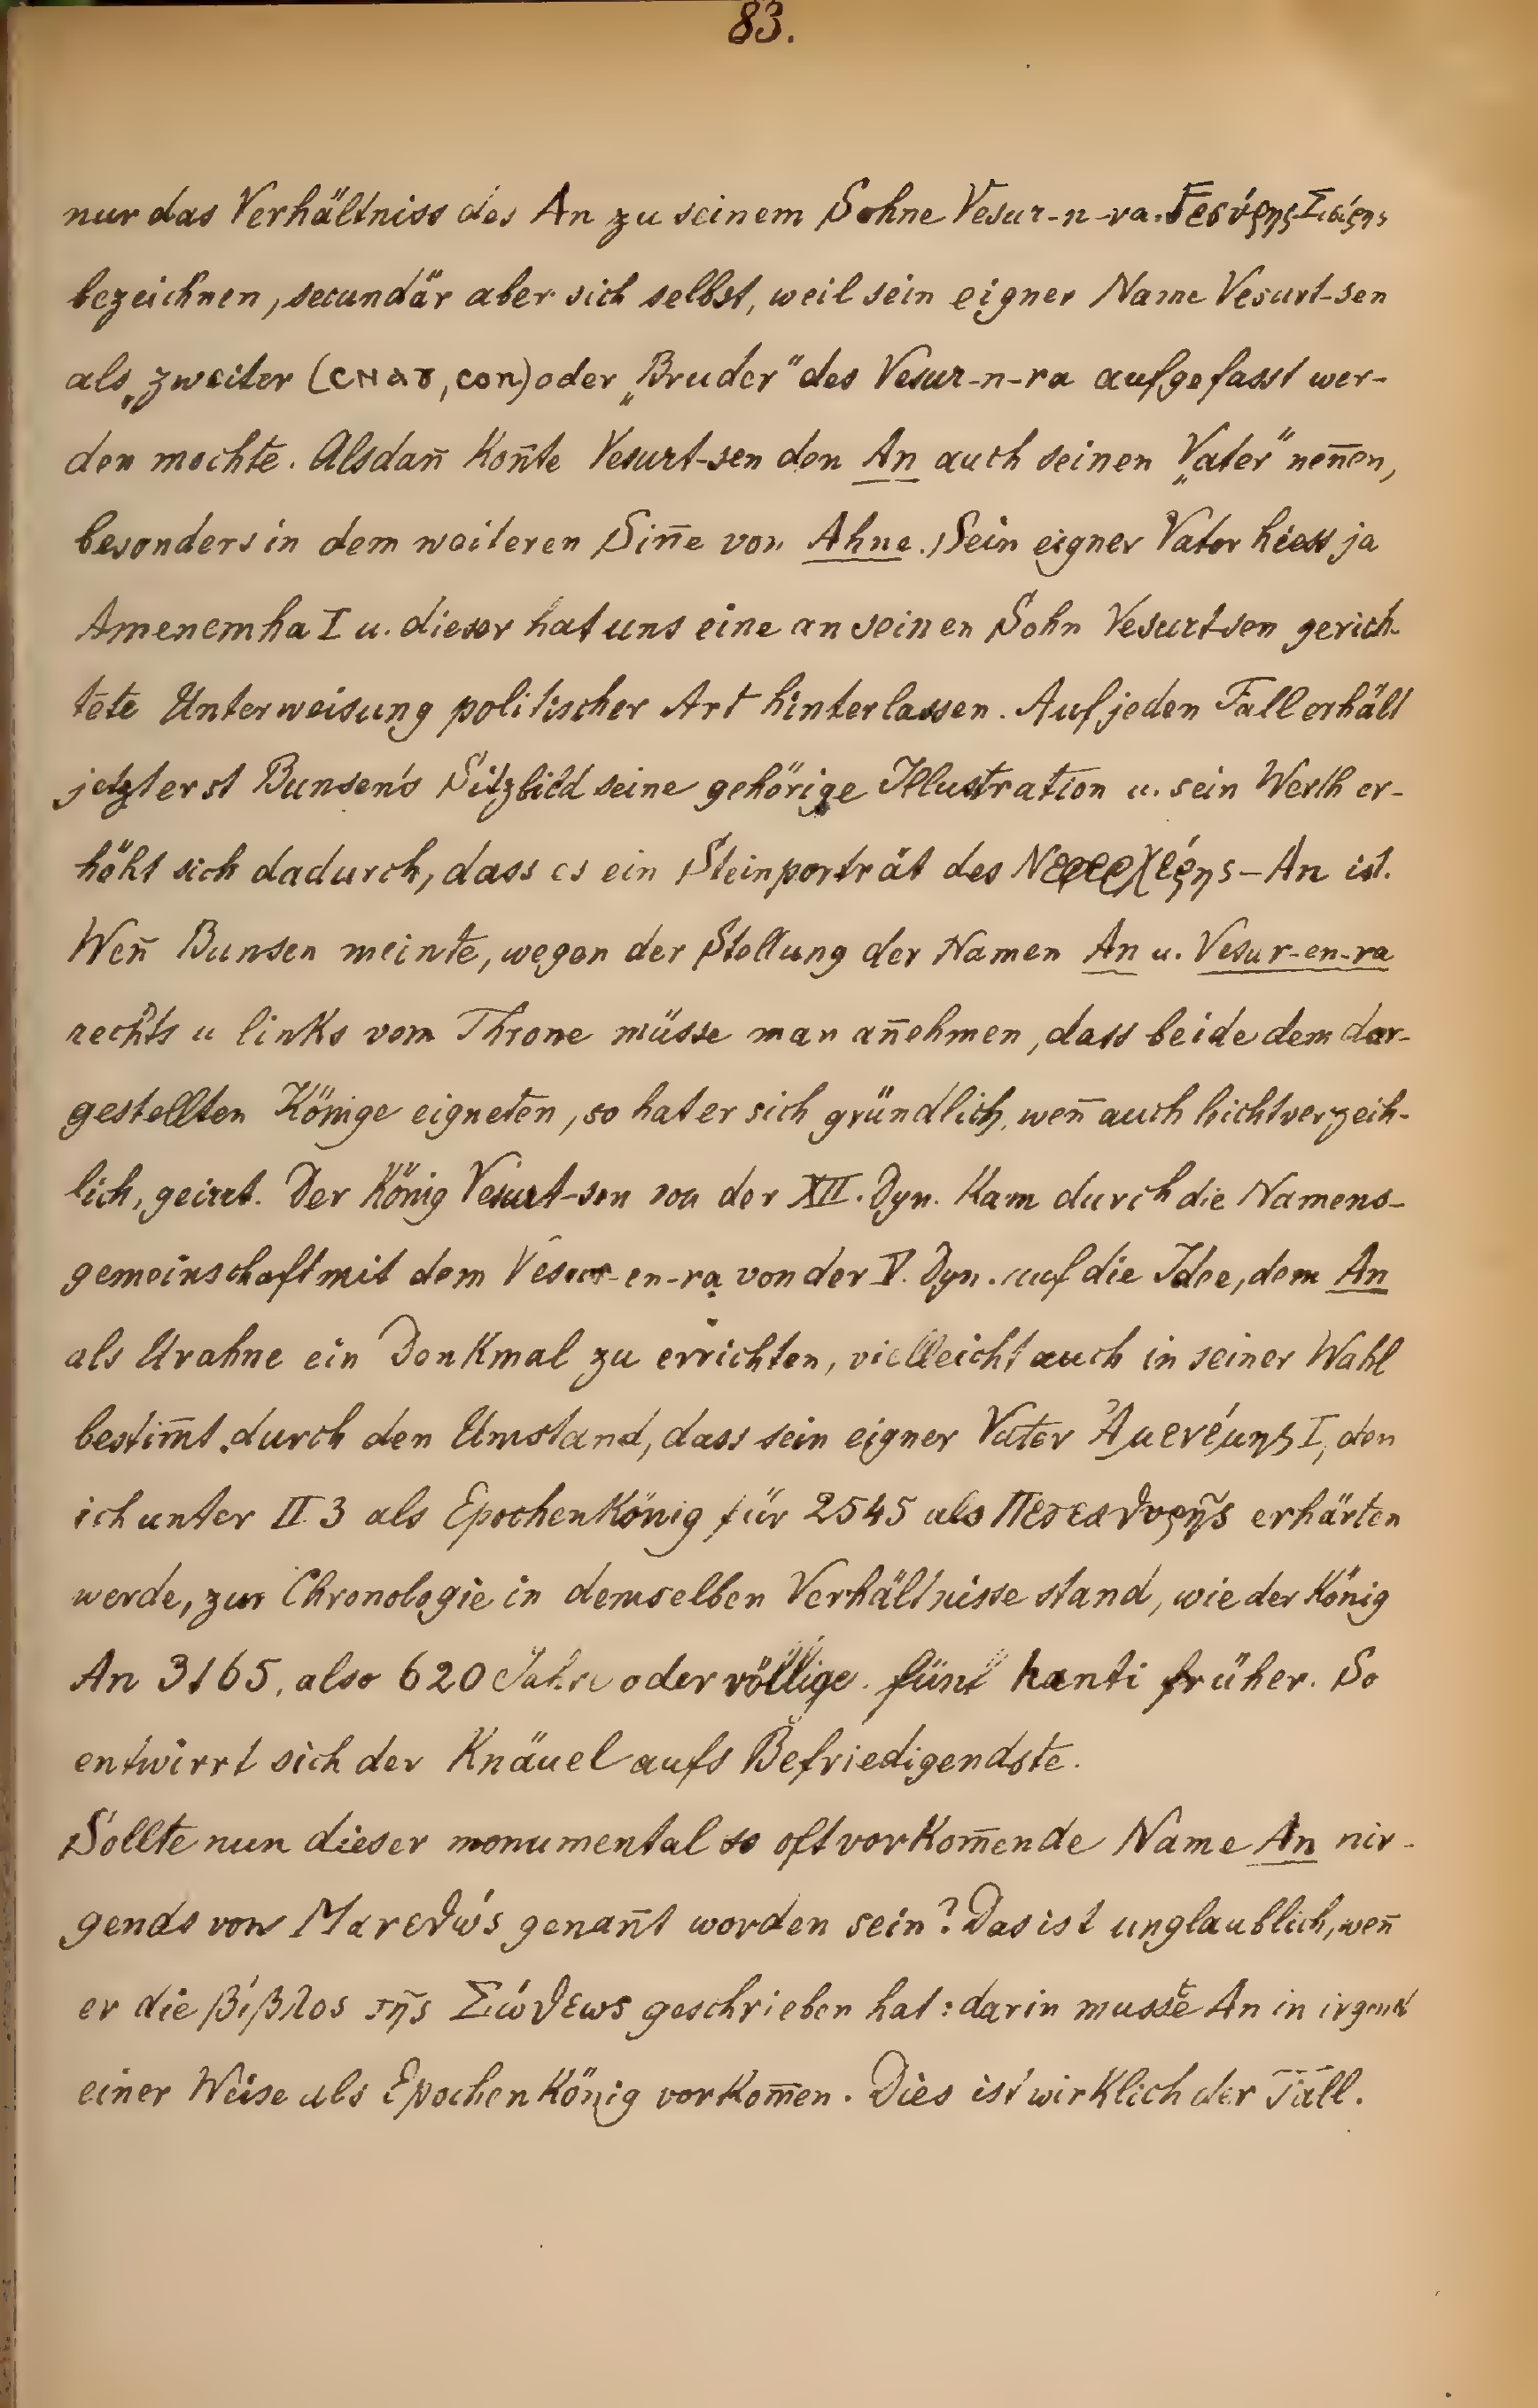 83.
nur das Verhältniss des An zu seinem Sohne Vesur-n-ra. Ϝεσύρης-Σισίρης
bezeichnen, secundär aber sich selbst, weil sein eigner Name Vesurt-sen
als „zweiter (ⲥⲛⲁⲩ, ⲥⲟⲛ) oder „Bruder" des Vesur-n-ra aufgefasst wer-
den mochte. Alsdan̄ Kon̄te Vesurt-sen den An auch seinen „Vater" nen̄en,
besonders in dem weiteren Sin̄e von Ahne. Sein eigner Vater hiess ja
Amenemha I u. dieser hat uns eine an seinen Sohn Vesurtsen gerich-
tete Unterweisung politischer Art hinterlassen. Auf jeden Fall erhält
jetzt erst Bunsen's Sitzbild seine gehörige Illustration u. sein Werth er-
höht sich dadurch, dass es ein Steinporträt des Νεφερχέρης-An ist.
Wen̄ Bunsen meinte, wegen der Stellung der Namen An u. Vesur-en-ra
rechts u links vom Throne müsse man an̄ehmen, dass beide dem dar-
gestellten Könige eigneten, so hat er sich gründlich, wen̄ auch leichtverzeih-
lich, geirrt. Der König Vesurt-sen von der XII. Dyn. Kam durch die Namens-
gemeinschaft mit dem Vesur-en-ra von der V. Dyn. auf die Idee, dem An
als Urahne ein Denkmal zu errichten, vielleicht auch in seiner Wahl
bestim̄t durch den Umstand, dass sein eigner Vater Ἀμενέμης I, den
ich unter II 3 als Epochenkönig für 2545 als Πετεαθυρῆς erhärten
werde, zur Chronologie in demselben Verhältnisse stand, wie der König
An 3165, also 620 Jahre oder völlige fünf hanti früher. So
entwirrt sich der Knäuel aufs Befriedigendste.
Sollte nun dieser monumental so oft vorkom̄ende Name An nir-
gends von Μανεθώς genan̄t worden sein? Das ist unglaublich, wen̄
er die βίβλος τῆς Σώθεως geschrieben hat: darin musste An in irgend
einer Weise als Epochenkönig vorkom̄en. Dies ist wirklich der Fall.